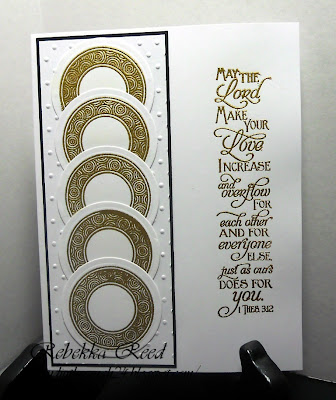 MAY THE
Lord
MAKE
YOUR
Love
INCREASE
and
overflow
FOR
each other
AND FOR
everyone
ELSE,
just as ours
DOES FOR
you.
1 THES 3:12
Rebekka Reed